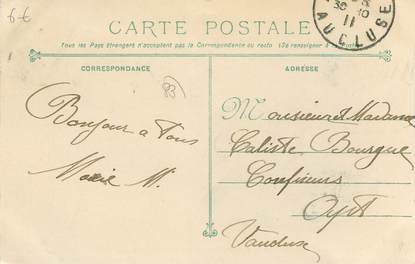 6-€
CARTE POSTALE
Tous les Pays étrangers n'acceptent pas la Correspondance au recto (Se renseigner à
30 -10
11
AUCLUSE
CORRESPONDANCE
ADRESSE
83
Bonjour a Tous
Marie M.
Monsieur et Madame
Caliste Bourgue
Confiseurs
Apt
Vaucluse